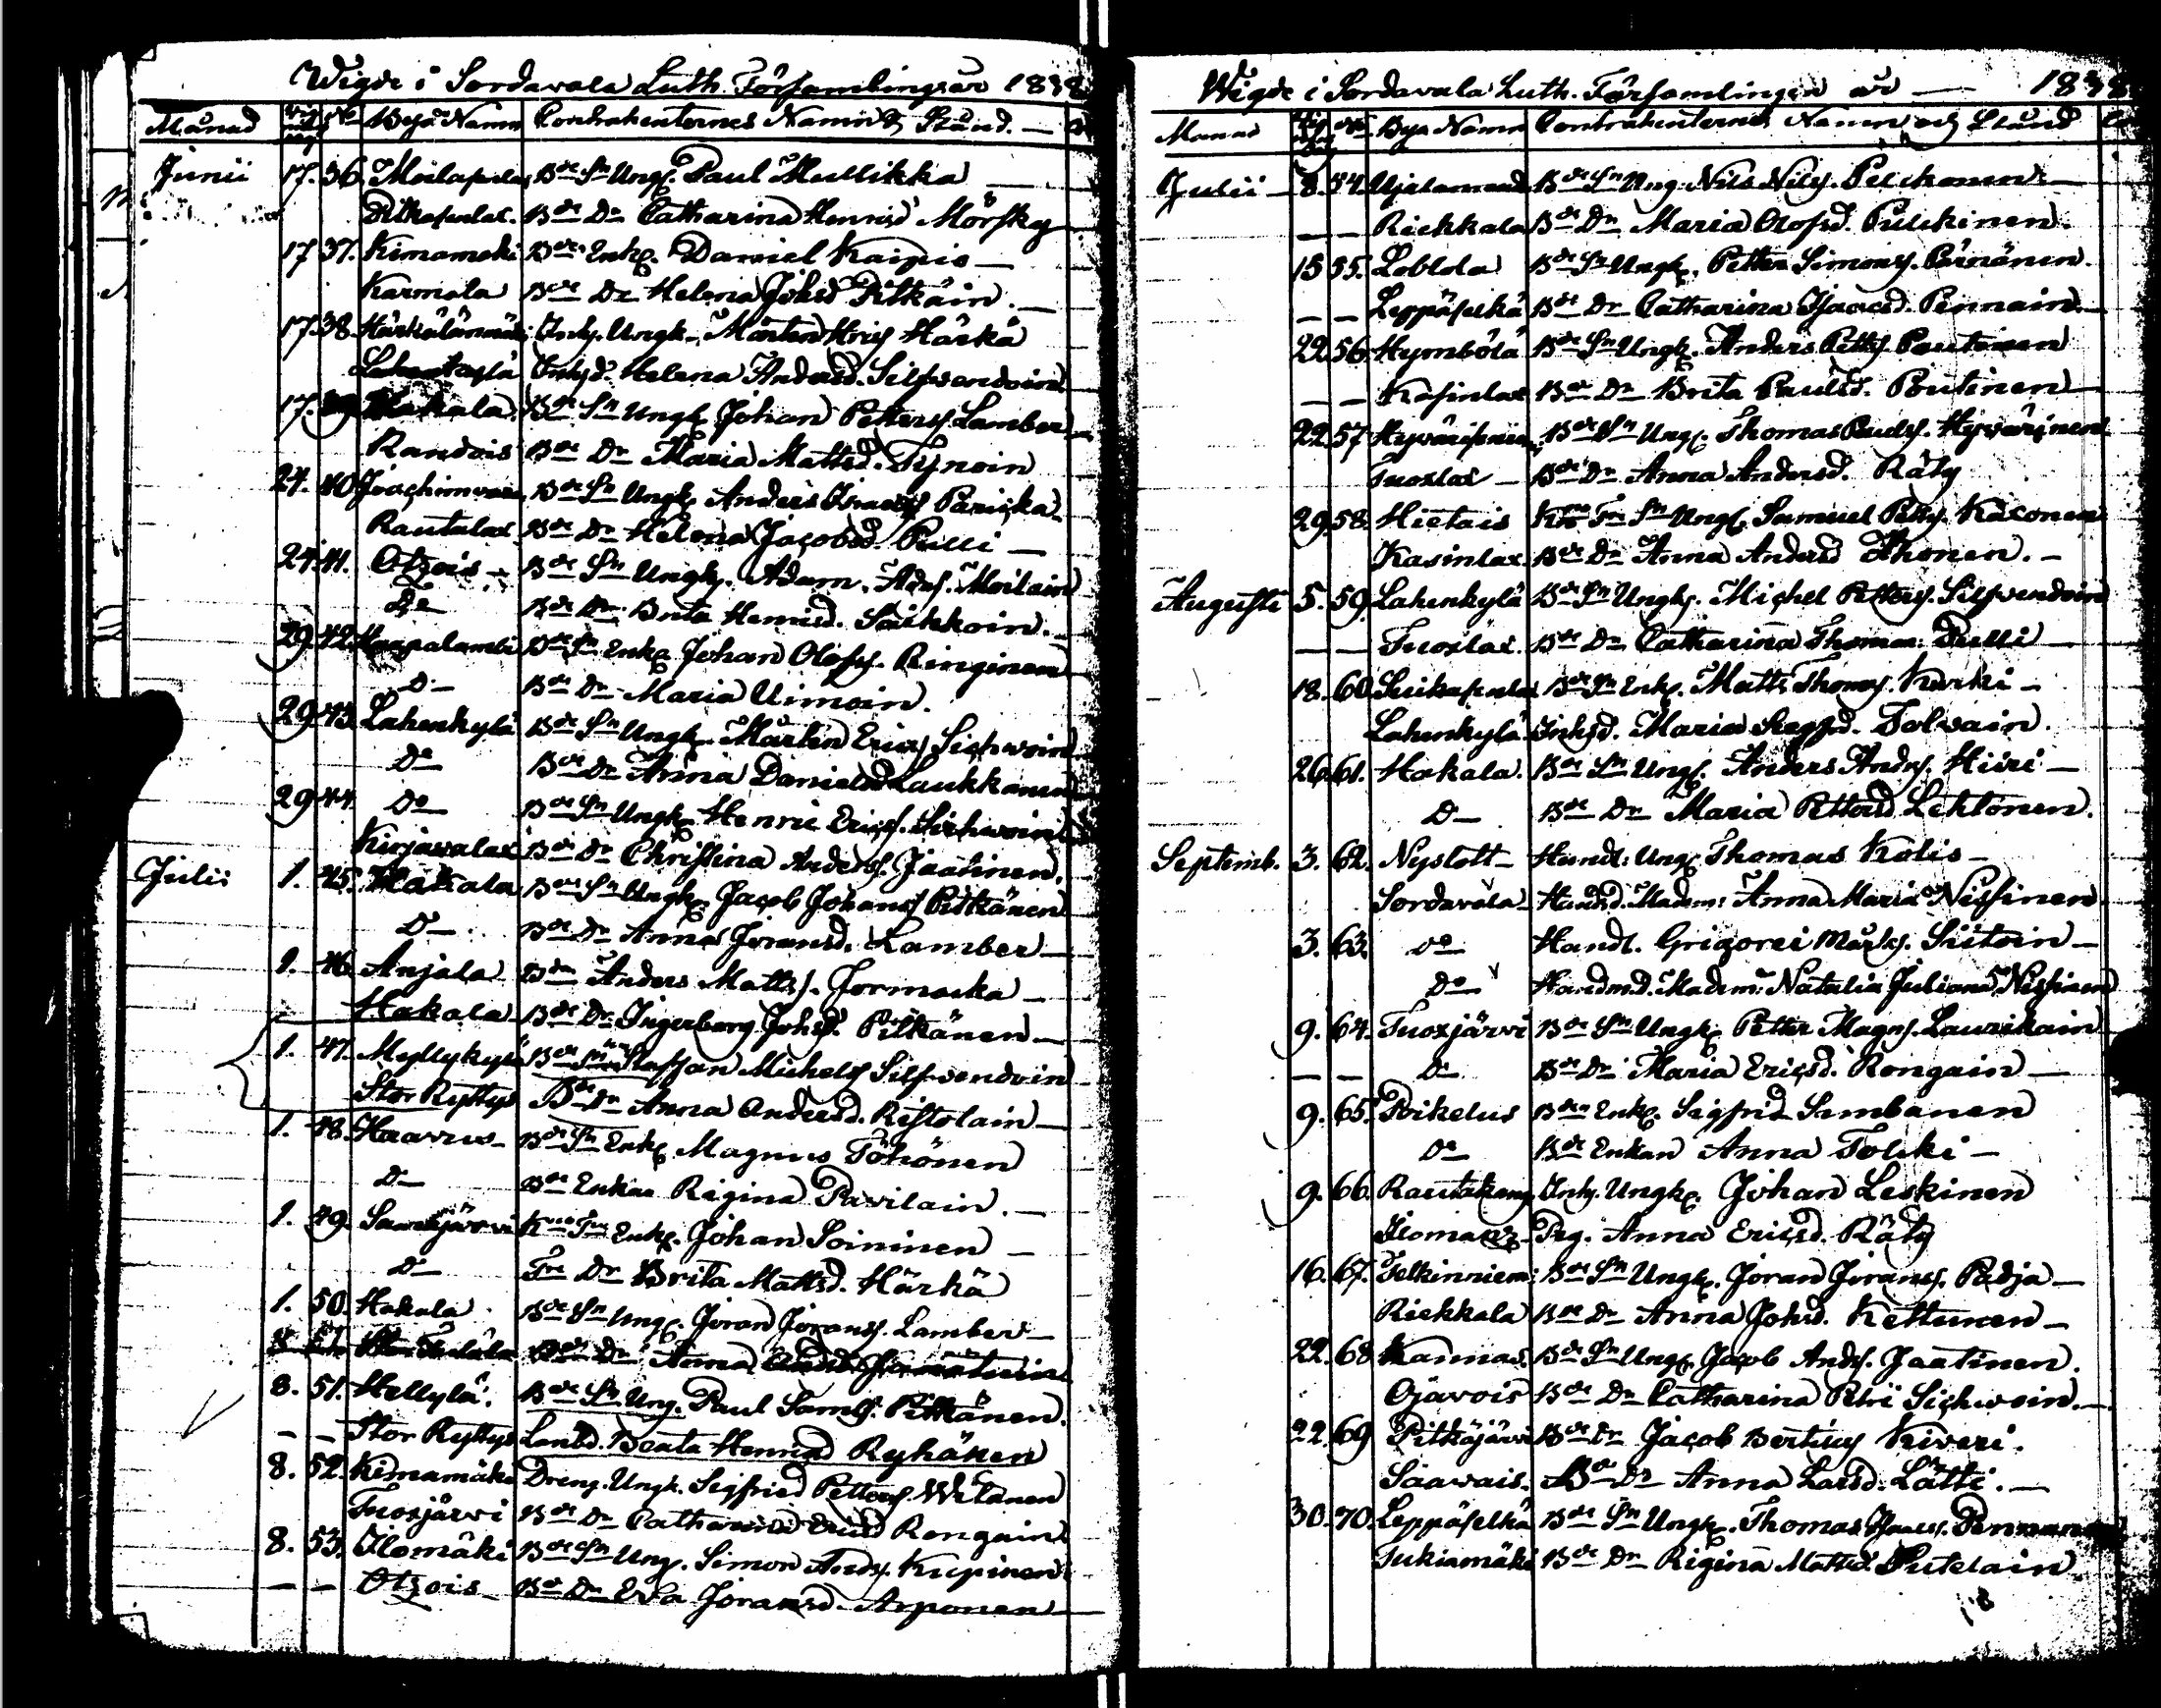 Wigde i Sordavala Luth. Församlings år 1838
Månad No Byä Namn Contrahenternes Namn & Stånd.
Junii 17. 36. Moilapelas Bde Sn Ungk. Paul Mullikka
Bde Dr Catharina Henrisd Mörsky
17 37. Kimameki Bde Enkg. Daniel Kaipis
Karmola Bde Dr Helena Johsd Pitkäin.
17 38. Inhs. Ungk. Mårten Hris Härkä
Inhsd. Helena Andersd. Silfvendoin
17. Hakala. Bde Sn Ungk. Johan Petters. Lamber
Randois Bde Dr Maria Mattsd. Tynoin
24. 40 Joachimvara Bde Sn Ungk. Anders
Rautalax Bde Dr Helena Jacobsd. Pulli
24. 41. Otsois Bde Sn Ungk. Adam. Ads. Moilain
Do Bde Dr Brita Henrisd. Saikkoin.
29. 42. Haapalambi Bde Sn Enkg Johan Olofss. Ringinen
D Bde Dr Maria Uimoin.
29 43. Lahenkylä Bde Sn Ungk. Mårten Erics Sichwoin
Do Bde Dr Anna Danielsd Laukkanen
29 44 Do Bde Sn Ungk. Henric Erics. Sichwoin
Kirjavalax Bde Dr Christina Anders. Jaatinen.
Julii 1. 45. Hakala Bde Sn Ungk. Jacob Johans Pitkänen
D Bde Dr Anna Joransd. Lamber
1. 46. Anjala Bdn Anders Matts. Jormacka
Hakala Bde Dr Ingerborg Johsd. Pitkänen
1. 47. Myllykylä Bde Sn Staffan Michels Silfvendoin
Stor Ryttys Bde Dr Anna Andersd. Ristolain
1. 48. Haavus Bde Sn Enkg. Magnus Töhönen
D Bde Enkan Rigina Pavilain.
1. 49. Saarijärvi Enkg. Johan Soininen
D Dr Brita Mattsd. Härkä
1. 50. Hakala Bde Sn Ungk. Joran Jorans. Lamber
8. 51. Bde Dr Anna
8. 51. Hellylä. Bde Sn Ung. Paul Samls. Pitkänen.
Stor Ryttys Beata Henrisd Ryhänen
8. 52. Kimamäki Dreng. Ungk. Sigfried Petters.
Tuoxjärvi Bde Dr Catharina Ericsd Rongain
8. 53. Ilomäki Bde Sn Ung. Simon Anders. Kupinen
Otsois Bde Dr Eva Joransd. Arponen
Wigde i Sordavala Luth. Församlingen år 1838
Månad No Bya Namn Contrahenternes Namn och Stånd
Julii 8. 54. Bde Sn Ung. Nils Nils. Pelckonen
Riekkala Bde Dr Maria Olofsd. Pulckinen.
15 55. Bde Sn Ungk. Petter Simons. Pärnänen.
Leppäselkä Bde Dr Catharina Isacsd. Pennain.
22. 56. Hymbölä Bde Sn Ungk. Anders Petts. Pautinen
Kasinlax Bde Dr Brita Paulsd. Poutinen
22. 57. Bde Sn Ungk. Thomas Pauls. Hyvärinen
Tuoxlax Bde Dr Anna Andersd. Räty
29. 58. Hietais Kro Tre Sn Ungk. Samuel Petts. Kaconen
Kasinlax Bde Dr Anna Andersd Ihonen.
Augusti 5. 59. Lahenkylä Bde Sn Ungk. Michel Petters. Silfvendoin
Tuoxlax. Bde Dr Catharina Thomae Pulli
18. 60. Bde Sn Enkg. Matts Thoms. Kurki
Lahenkylä Inhsd. Maria Tolvain.
26. 61. Hakala. Bde Sn Ungk. Anders Anders. Hiiri
D Bde Dr Maria Pettersd Lehtonen.
Septemb. 3. 62. Nyslott Handl: Ungk Thomas Kolis
Sordavala Handsd. Madm: Anna Maria Nissinen
3. 63. Do Handl. Grigorei Mårts. Siitoin
Do Madem: Natalia Juliana Nissinen
9. 64. Tuoxjärvi Bde Sn Ungk Petter Magns. Laurikain
D Bde Dr Maria Ericsd. Rongain
9. 65. Poikelus Bde Enkg. Sigfrid Simbanen
Do Bde Enkan Anna Tolcki
9. 66. Rautakang Inhs. Ungk. Johan Leskinen
Ilomanz Pig. Anna Ericsd. Räty
16. 67. Telkinniemi Bde Sn Ungk. Joran Jorans. Padja
Riekkala Bde Dr Anna Johsd. Kettunen
22. 68. Kannas. Bde Sn Ungk. Jacob Ands. Jaatinen.
Ojavois Bde Dr Catharina Petri Sichwoin.
22. 69 Pitkäjärvi Bde Dr Jacob Bertils Kiveri.
Saavais. Bde Dr Anna Larsd. Lätti.
30. 70. Leppäselkä Bde Sn Ungk. Thomas Isacs. Pennanen
Tukiamäki Bde Dr Rigina Mattsd. Putelain.